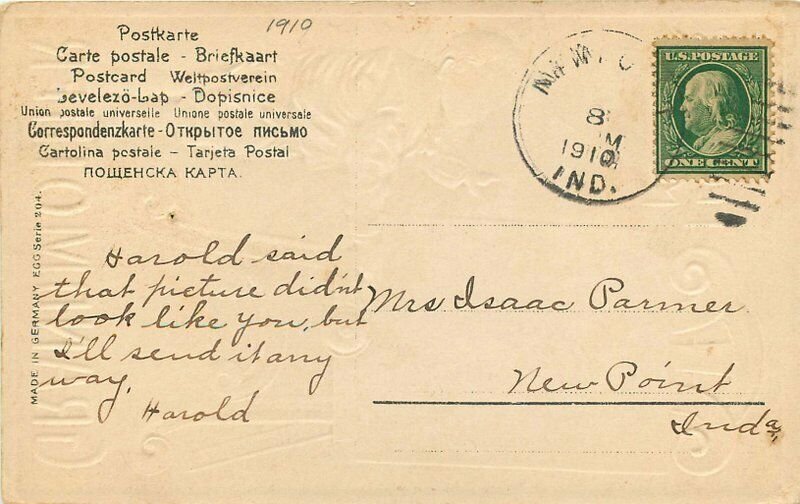 1910
Postkarte
Carte postale - Briefkaart
Postcard Weltpostverein
Levelező-Lap - Dopisnice
Union postale universelle Unione postale universale
Correspondenzkarte - Открытое письмо
Cartolina postale - Tarjeta Postal
ПОЩЕНСКА КАРТА.
8
M
1910
IND.
U.S. POSTAGE
ONE CENT
MADE IN GERMANY EGG Serie 204.
Harold said
that picture didn't
look like you, but
I'll send it any
way.
Harold
Mrs Isaac Parmer
New Point
Inda,